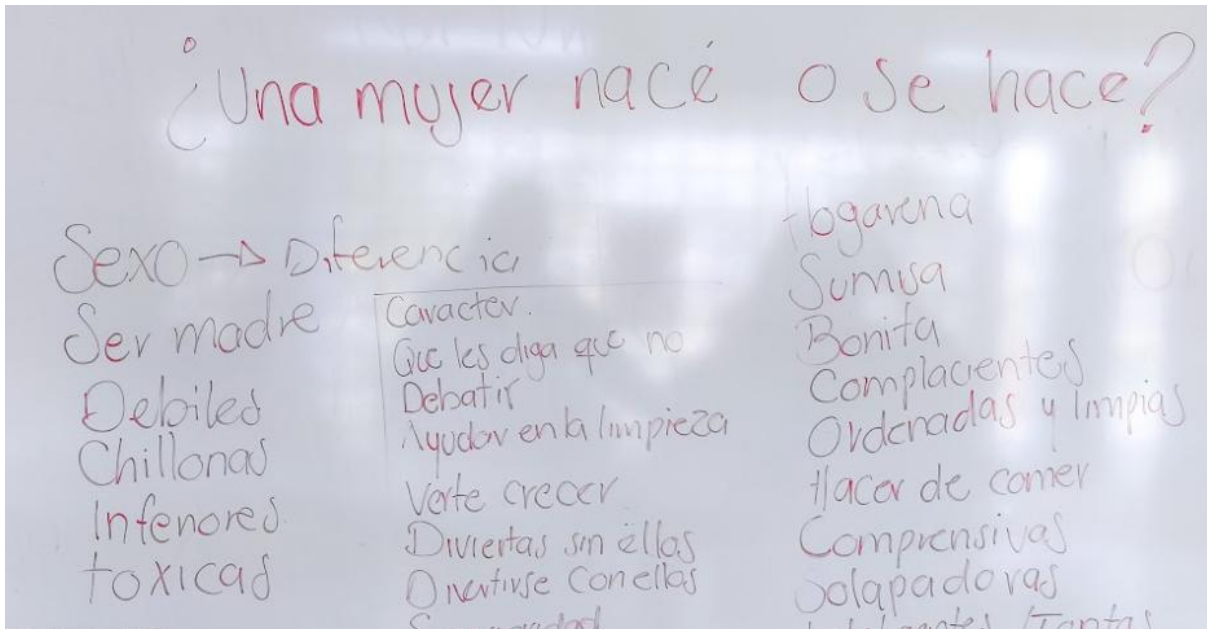 ¿Una mujer nacé o se hace?
Sexo → Diferencia
Ser madre
Debiles
Chillonas
Inferiores
toxicas
Caracter.
Que les diga que no
Debatir
Ayudar en la limpieza
Verte crecer
Diviertas sin ellos
Divertirse con ellos
Hogarena
Sumisa
Bonita
Complacientes
Ordenadas y limpias
Hacer de comer
Comprensivas
Solapadoras